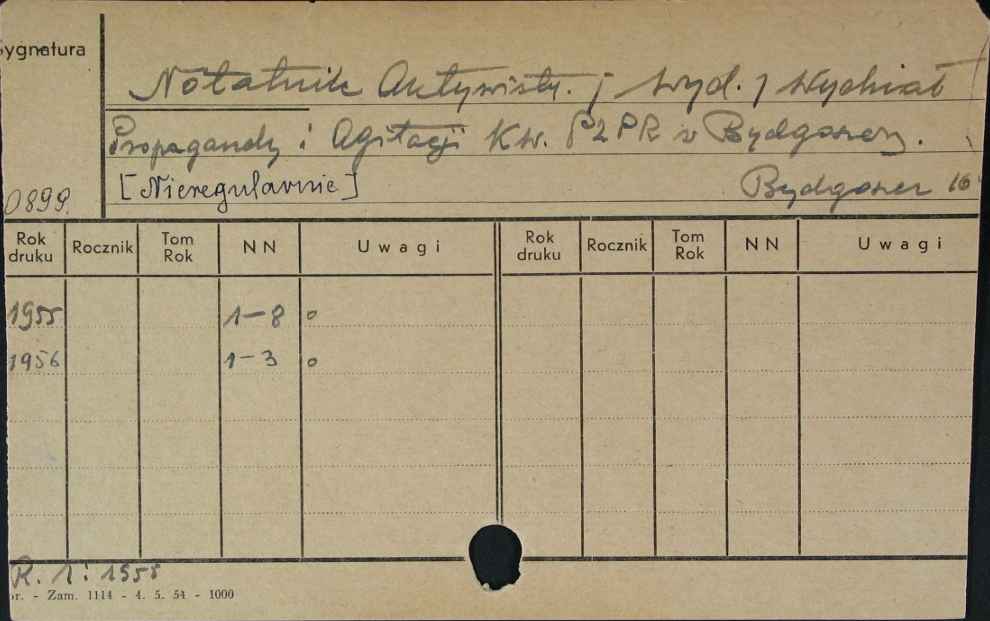 Sygnatura
Notatnik Aktywisty. / Wyd. / Wydział
Propagandy i Agitacji KW. PZPR w Bydgoszczy.
[Nieregularnie] Bydgoszcz 16
0899.
Rok druku Rocznik Tom Rok NN Uwagi Rok druku Rocznik Tom Rok NN Uwagi
1955 1-8 o
1956 1-3 o
R. 1: 1955
r. - Zam. 1114 - 4. 5. 54 - 1000